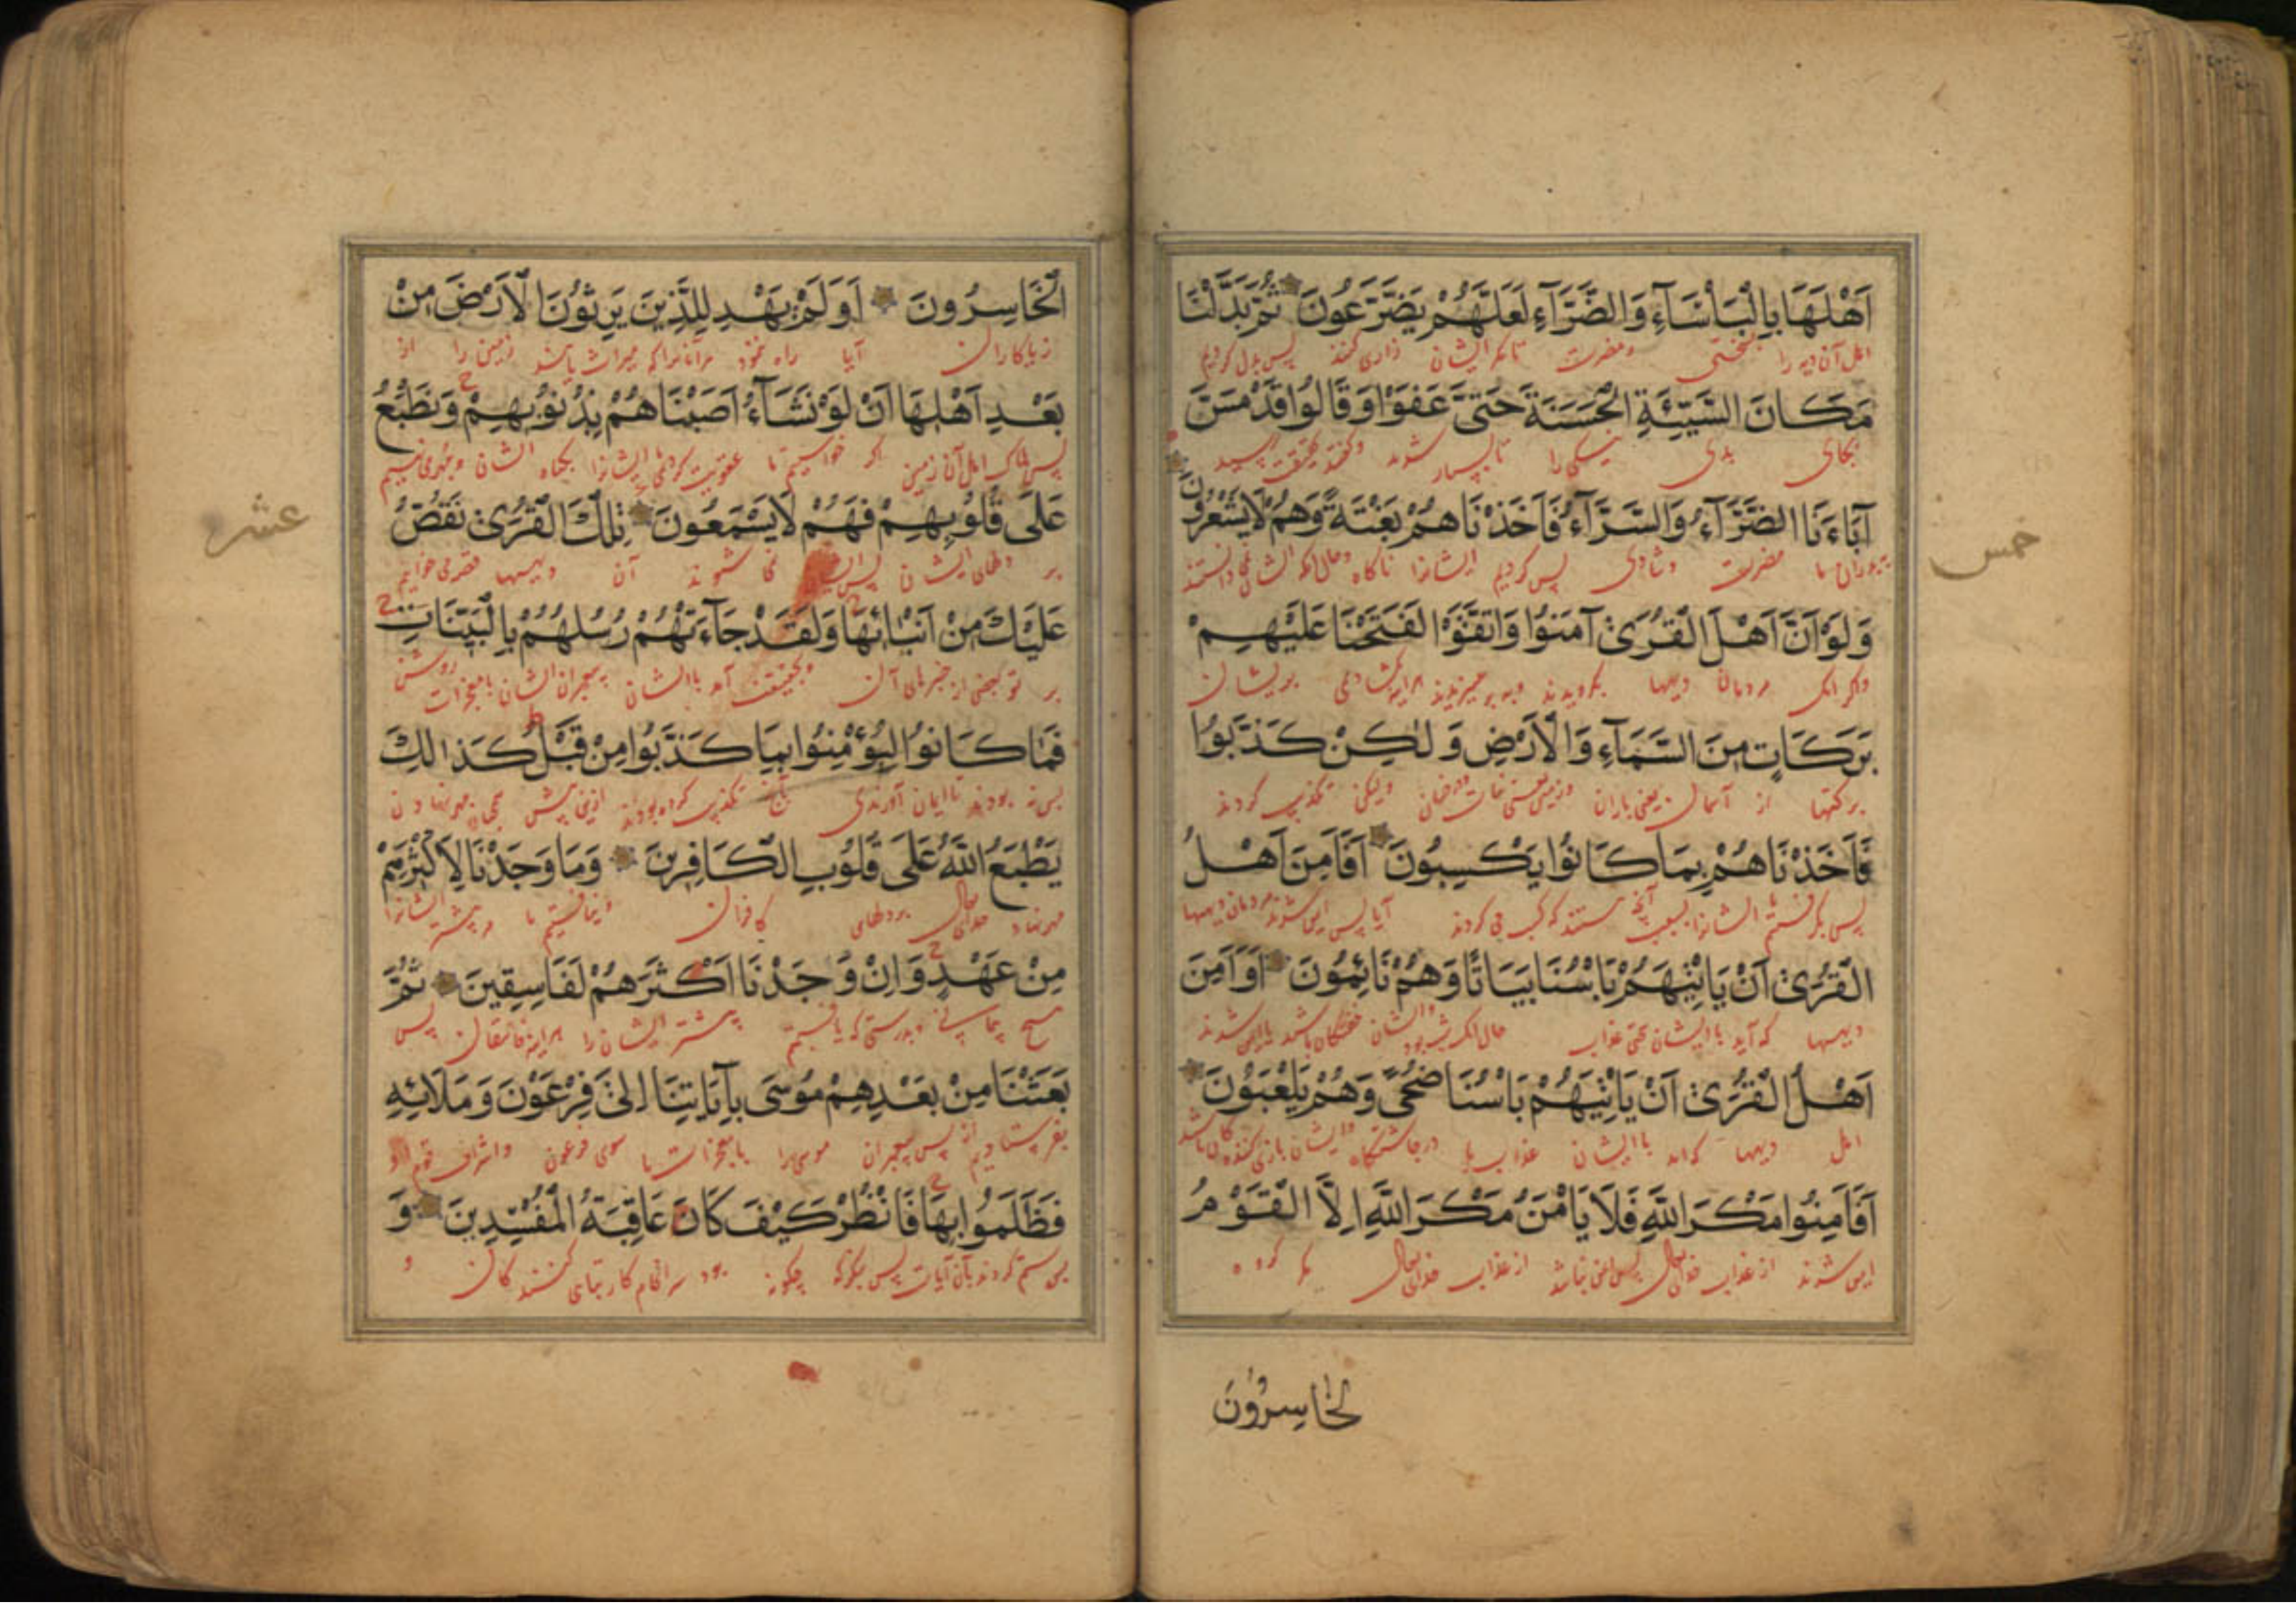 اَهْلَهَا بِالْبَأْسَآءِ وَالضَّرَّآءِ لَعَلَّهُمْ يَضَّرَّعُونَ ثُمَّ بَدَّلْنَا
اهل آن ديه را بسختى ومضرت تا مكر ايشان زارى كنند پس بدل كرديم
مَكَانَ السَّيِّئَةِ الْحَسَنَةَ حَتَّى عَفَوْا وَقَالُوا قَدْ مَسَّ
بجاى بدى نيكى را تا بسيار شوند وكفتند بحقيقت رسيد
آبَاءَنَا الضَّرَّآءُ وَالسَّرَّآءُ فَاَخَذْنَاهُمْ بَغْتَةً وَهُمْ لَا يَشْعُرُونَ
خمس
پدران ما مضرت وشادى پس كرديم ايشانرا ناكاه وحال آنكه ايشان نمى دانستند
وَلَوْ اَنَّ اَهْلَ الْقُرَى آمَنُوا وَاتَّقَوْا لَفَتَحْنَا عَلَيْهِمْ
واكر آنك مردمان ديهها بكرويدند وبپرهيزيدند هراينه بكشادمى بريشان
بَرَكَاتٍ مِنَ السَّمَآءِ وَالْاَرْضِ وَلٰكِنْ كَذَّبُوا
بركتها از آسمان يعنى باران وزمين وليكن تكذيب كردند
فَاَخَذْنَاهُمْ بِمَا كَانُوا يَكْسِبُونَ اَفَاَمِنَ اَهْلُ
پس بكرفتيم ما ايشانرا بسبب آنچه كسب مى كردند آيا پس ايمن شوند مردمان ديهها
الْقُرَى اَنْ يَأْتِيَهُمْ بَأْسُنَا بَيَاتًا وَهُمْ نَائِمُونَ اَوَاَمِنَ
ديهها كه آيد با ايشان عذاب حال آنكه شب بود وايشان خفتكان باشد يا ايمن شوند
اَهْلُ الْقُرَى اَنْ يَأْتِيَهُمْ بَأْسُنَا ضُحًى وَهُمْ يَلْعَبُونَ
اهل ديهها كه آيد با ايشان عذاب ما در چاشتكاه وايشان بازى كنندكان باشد
اَفَاَمِنُوا مَكْرَ اللَّهِ فَلَا يَأْمَنُ مَكْرَ اللَّهِ اِلَّا الْقَوْمُ
ايمن شوند از عذاب خداى تعالى پس ايمن نباشد از عذاب خداى تعالى مكر كروه
الْخَاسِرُونَ
الْخَاسِرُونَ اَوَلَمْ يَهْدِ لِلَّذِينَ يَرِثُونَ الْاَرْضَ مِنْ
زيانكاران آيا راه ننمود مر آنانرا كه ميراث يابند زمين را از
بَعْدِ اَهْلِهَا اَنْ لَوْ نَشَآءُ اَصَبْنَاهُمْ بِذُنُوبِهِمْ وَنَطْبَعُ
پس هلاك اهل آن زمين اكر خواستيم ما عقوبت كردمى ايشانرا بكناه ايشان ومهر مى نهيم
عَلَى قُلُوبِهِمْ فَهُمْ لَا يَسْمَعُونَ تِلْكَ الْقُرَى نَقُصُّ
عشر
بر دلهاى ايشان پس ايشان نمى شنوند آن ديهها قصه مى خوانيم
عَلَيْكَ مِنْ اَنْبَائِهَا وَلَقَدْ جَآءَتْهُمْ رُسُلُهُمْ بِالْبَيِّنَاتِ
بر تو بعضى از خبرهاى آن وبحقيقت آمد با ايشان پيغمبران ايشان با معجزات روشن
فَمَا كَانُوا لِيُؤْمِنُوا بِمَا كَذَّبُوا مِنْ قَبْلُ كَذٰلِكَ
پس نه بودند تا ايمان آورندى تكذيب كرده بودند ازين پيش همچنين مهر نهادن
يَطْبَعُ اللَّهُ عَلَى قُلُوبِ الْكَافِرِينَ وَمَا وَجَدْنَا لِاَكْثَرِهِمْ
مهر نهاد خداى تعالى بر دلهاى كافران ونيافتيم ما مر بيشتر ايشانرا
مِنْ عَهْدٍ وَاِنْ وَجَدْنَا اَكْثَرَهُمْ لَفَاسِقِينَ ثُمَّ
هيچ پيمانى وبدرستى كه يافتيم بيشتر ايشان را هراينه فاسقان پس
بَعَثْنَا مِنْ بَعْدِهِمْ مُوسَى بِآيَاتِنَا اِلَى فِرْعَوْنَ وَمَلَائِهِ
بفرستاديم از پس پيغمبران موسى را با معجزات ما سوى فرعون واشراف قوم او
فَظَلَمُوا بِهَا فَانْظُرْ كَيْفَ كَانَ عَاقِبَةُ الْمُفْسِدِينَ وَ
پس ستم كردند بآن آيات پس بنكر كه چكونه بود سرانجام كار تباهى كنندكان و